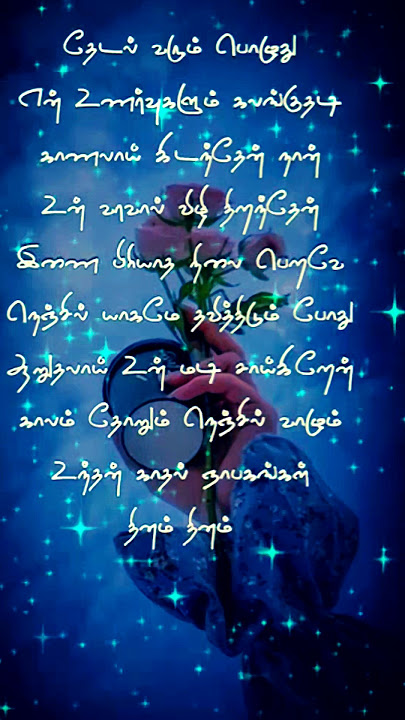 தேடல் வரும் பொழுது
என் உணர்வுகளும் கலங்குதடி
காணலாய் கிடந்தேன் நான்
உன் வரவால் விழி திறந்தேன்
இணை பிரியாத நிலை பெறவே
நெஞ்சில் யாகமே தவித்திடும் போது
ஆறுதலாய் உன் மடி சாய்கிறேன்
காலம் தோறும் நெஞ்சில் வாழும்
உந்தன் காதல் ஞாபகங்கள்
தினம் தினம்